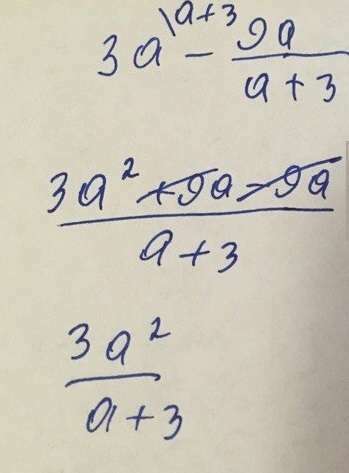 3a \a+3 − 9a
a+3
3a² +9a −9a
a+3
3a²
a+3